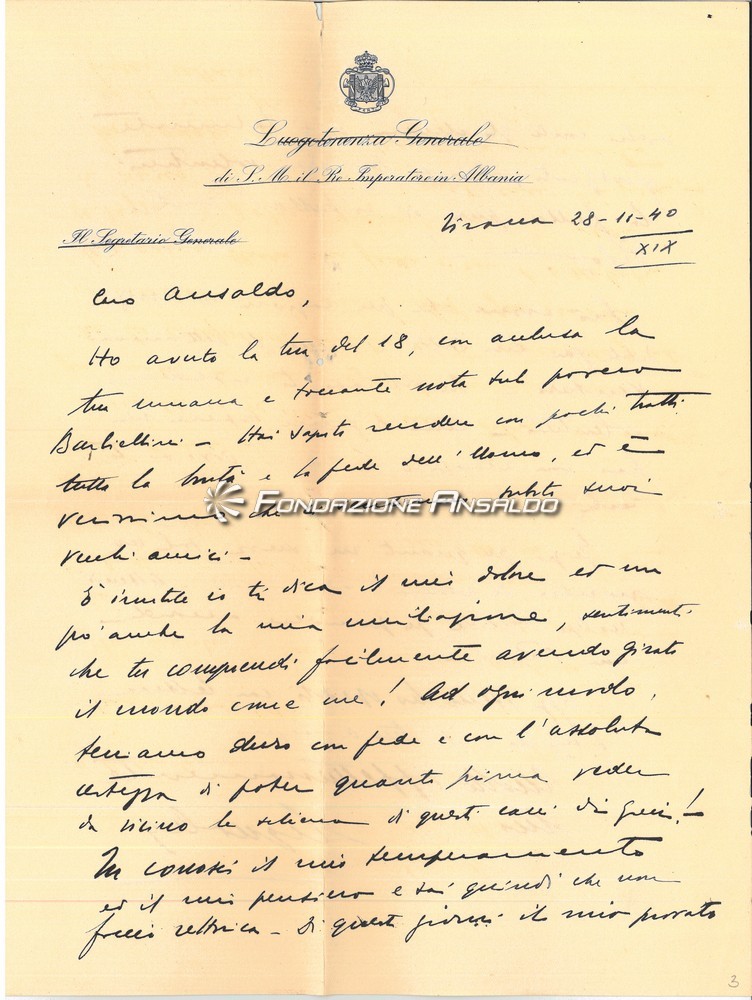 Luogotenenza Generale
di S. M. il Re Imperatore in Albania
Il Segretario Generale
Tirana 28-11-40
XIX
Caro Ansaldo,
Ho avuto la tua del 18, con acclusa la
tua umana e toccante nota sul povero
Barbiellini - Hai saputo rendere con pochi tratti
tutta la bontà e la fede dell'Uomo, ed è
verissimo che subito suoi
vecchi amici -
È inutile io ti dica il mio dolore ed un
po' anche la mia umiliazione, sentimenti
che tu comprendi facilmente avendo girato
il mondo come me! Ad ogni modo,
teniamo duro con fede e con l'assoluta
certezza di poter quanto prima veder
da vicino le schiena di questi cani di greci! -
Tu conosci il mio temperamento
ed il mio pensiero e sai quindi che non
faccio rettorica - Di questi giorni il mio provato
FONDAZIONE ANSALDO
3